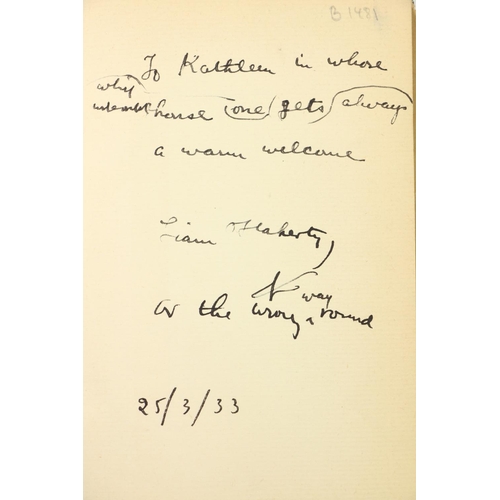 B 1481
To Kathleen in whose
house one gets always
a warm welcome
Liam O'Flaherty,
way
or the wrong round
25/3/33